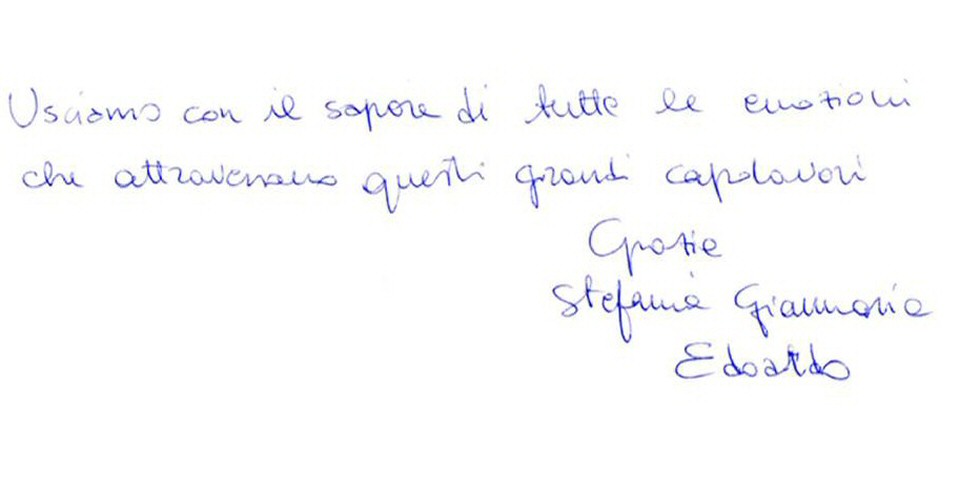 Usciamo con il sapore di tutte le emozioni
che attraversano questi grandi capolavori
Grazie
Stefania Gianmaria
Edoardo